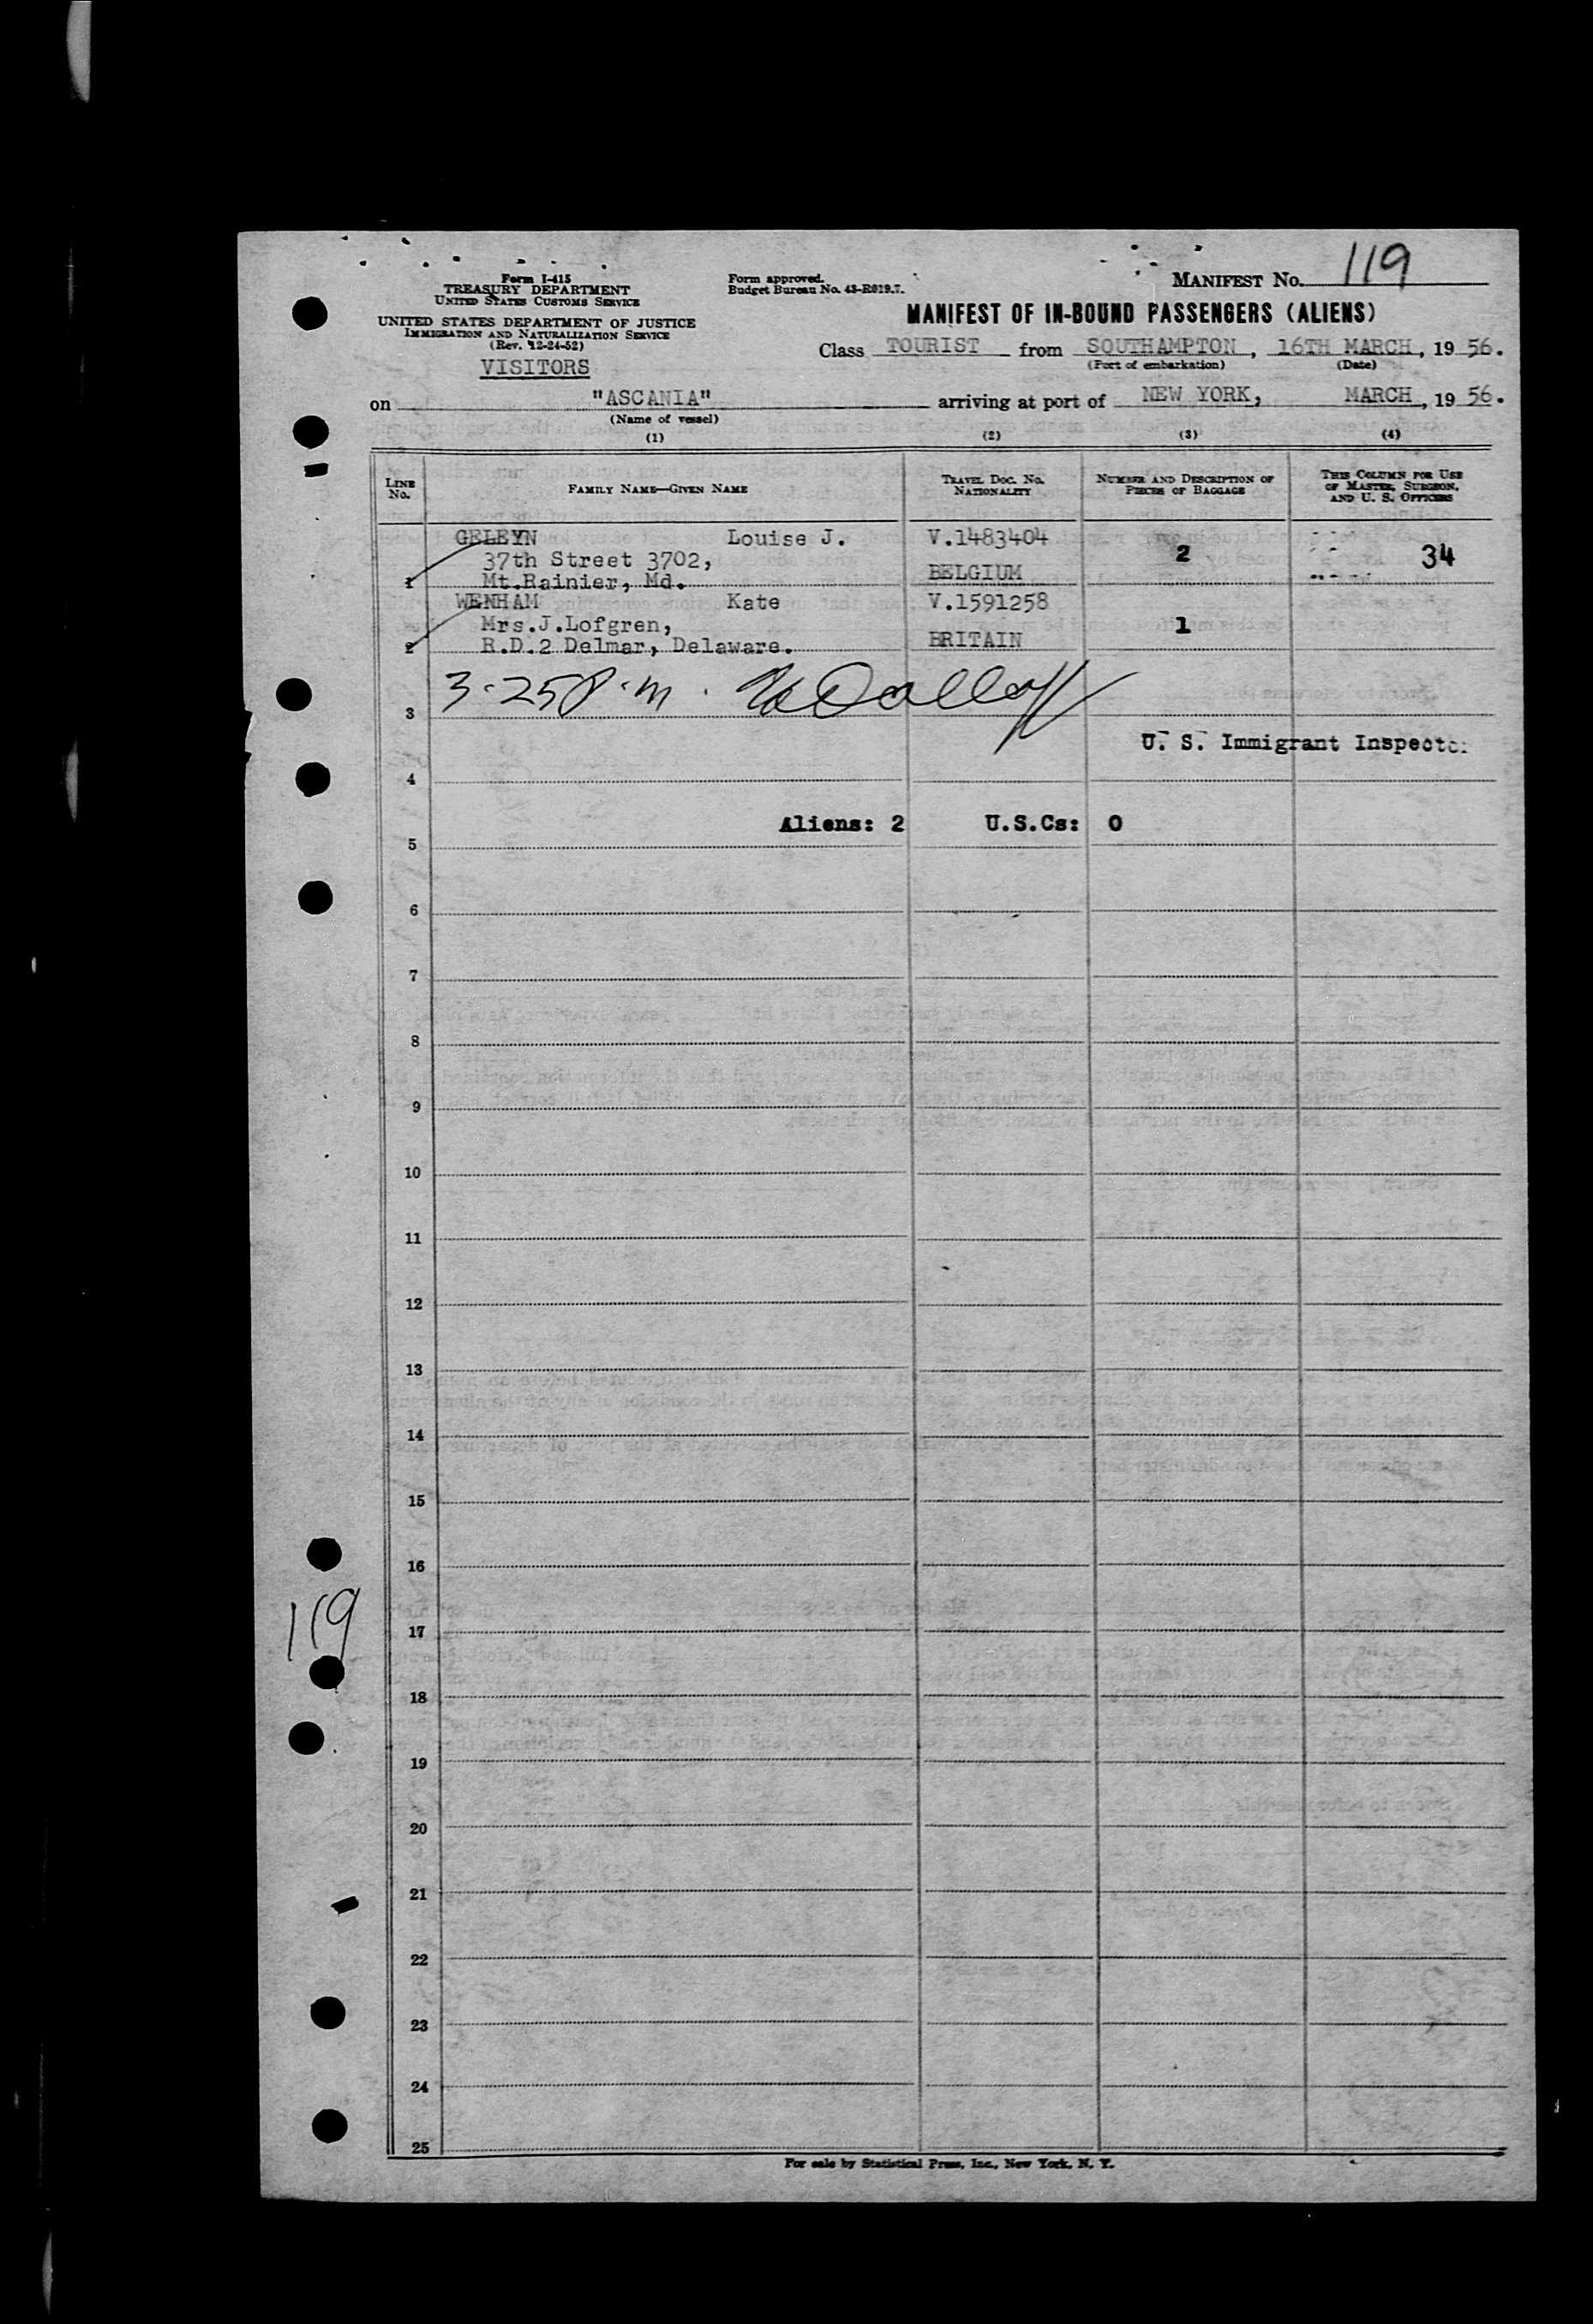 Form I-415
TREASURY DEPARTMENT
UNITED STATES CUSTOMS SERVICE
UNITED STATES DEPARTMENT OF JUSTICE
IMMIGRATION AND NATURALIZATION SERVICE
(Rev. 12-24-52)
VISITORS
Form approved.
Budget Bureau No. 43-R019.7.
MANIFEST NO. 119
MANIFEST OF IN-BOUND PASSENGERS (ALIENS)
Class TOURIST from SOUTHAMPTON, 16TH MARCH, 19 56.
(Port of embarkation) (Date)
on "ASCANIA" arriving at port of NEW YORK, MARCH, 19 56.
(Name of vessel)
(1) (2) (3) (4)
LINE NO. FAMILY NAME—GIVEN NAME TRAVEL DOC. NO. NATIONALITY NUMBER AND DESCRIPTION OF PIECES OF BAGGAGE THIS COLUMN FOR USE OF MASTER, SURGEON, AND U. S. OFFICERS
GELEYN Louise J. V.1483404
37th Street 3702, 2 34
1 Mt.Rainier, Md. BELGIUM
WENHAM Kate V.1591258
Mrs.J.Lofgren, 1
2 R.D.2 Delmar, Delaware. BRITAIN
3.25 P.m.
3
U. S. Immigrant Inspector
4
Aliens: 2 U.S.Cs: 0
5
6
7
8
9
10
11
12
13
14
15
16
119
17
18
19
20
21
22
23
24
25
For sale by Statistical Press, Inc., New York, N. Y.